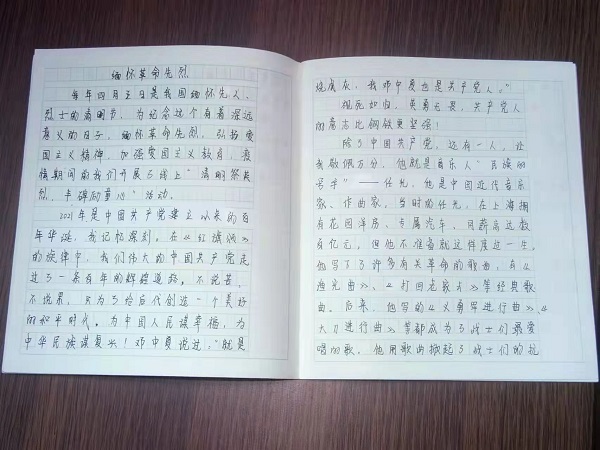 缅怀革命先烈
每年四月五日是我国缅怀先人、
烈士的清明节，为纪念这个有着深远
意义的日子，缅怀革命先烈，弘扬爱
国主义精神，加强爱国主义教育，疫
情期间我们开展了线上“清明祭英
烈，丰碑励童心”活动。
2021年是中国共产党建立以来的百
年华诞，我记忆深刻。在《红旗颂》
的旋律中，我们伟大的中国共产党走
过了一条百年的辉煌道路。不说苦、
不说累，只为了给后代创造一个美好
的和平时代。为中国人民谋幸福，为
中华民族谋复兴！邓中夏说过：“就是
烧成灰，我邓中夏也是共产党人。”
视死如归，英勇无畏，共产党人
的意志比钢铁更坚强！
除了中国共产党，还有一人，让
我敬佩万分，他就是音乐人“民族的
号手”——任光，他是中国近代音乐
家、作曲家，当时的任光，在上海拥
有花园洋房、专属汽车，月薪高达数
百亿元，但他不准备就这样度过一生。
他写了许多有关革命的歌曲，有《
渔光曲》、《打回老家去》等经典歌
曲。后来，他写的《义勇军进行曲》、《
大刀进行曲》等都成为了战士们最爱
唱的歌，他用歌曲掀起了战士们的抗